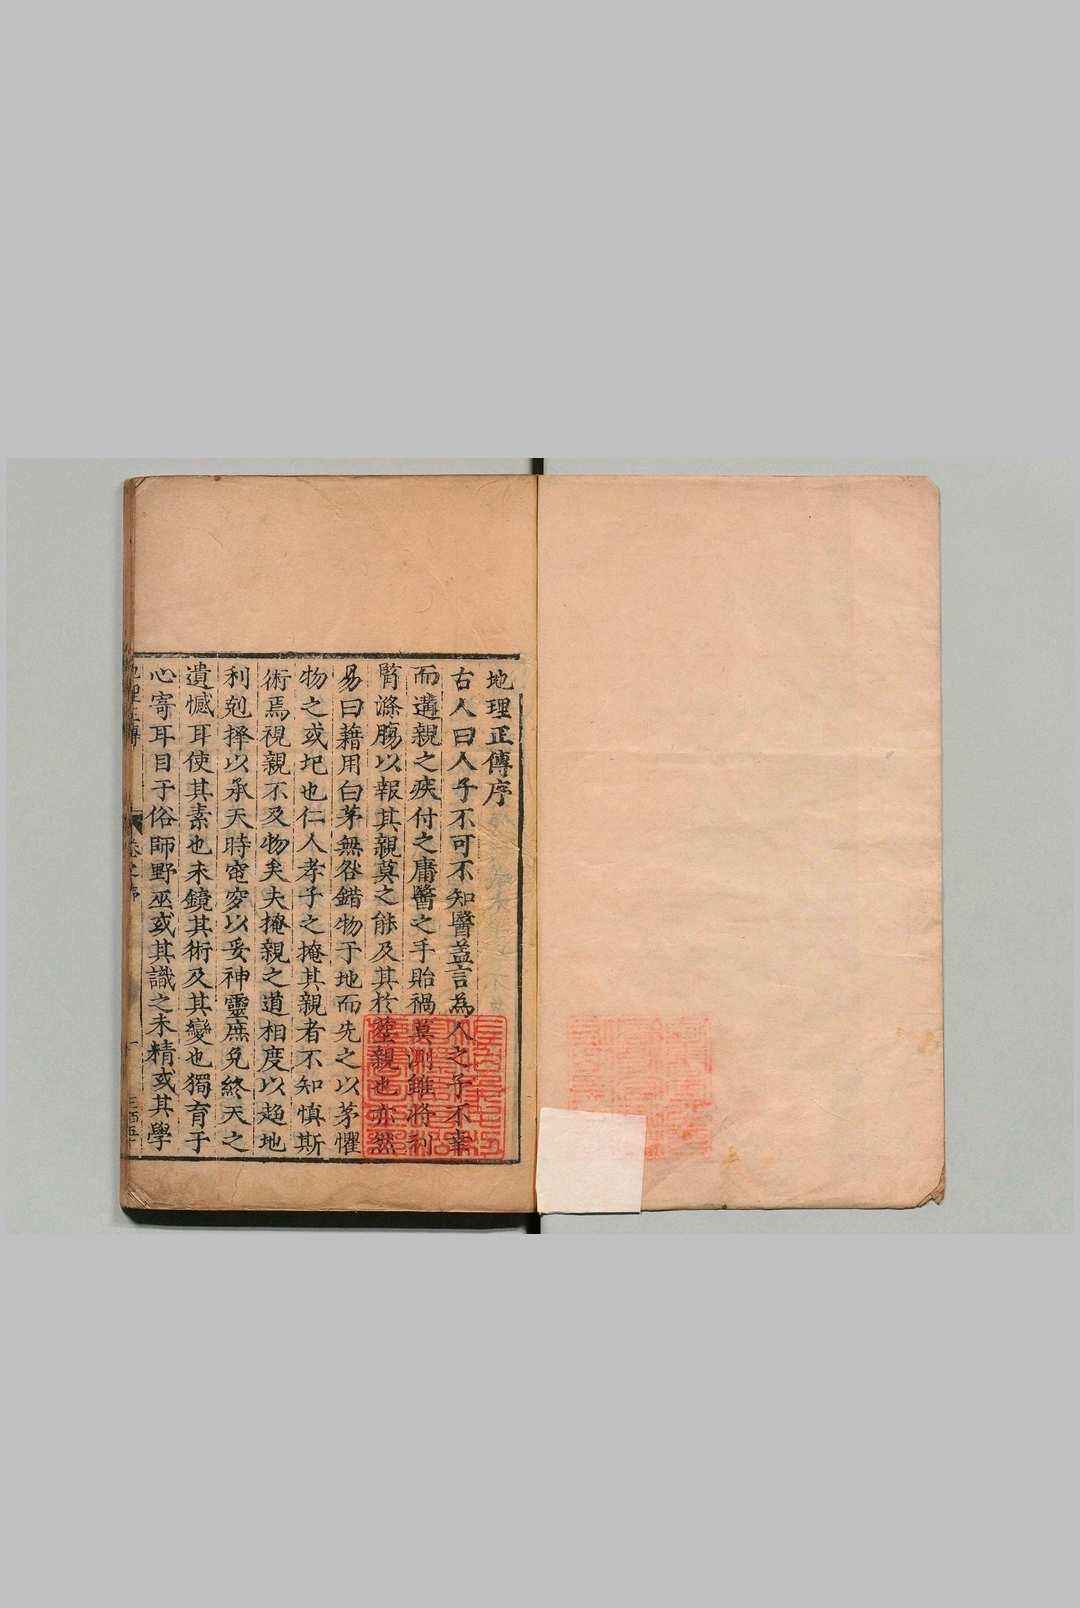 地理正傳序
古人曰人子不可不知醫蓋言為人之子不幸
而遘親之疾付之庸醫之手貽禍莫測雖將刲
臂滌膓以報其親莫之能及其於塟親也亦然
易曰藉用白茅無咎錯物于地而先之以茅懼
物之或圮也仁人孝子之掩其親者不知慎斯
術焉視親不及物矣夫掩親之道相度以趋地
利剋擇以承天時窀穸以妥神靈庶免終天之
遺憾耳使其素也未鏡其術及其變也獨盲于
心寄耳目于俗師野巫或其識之未精或其學
地理正傳
卷之序
一